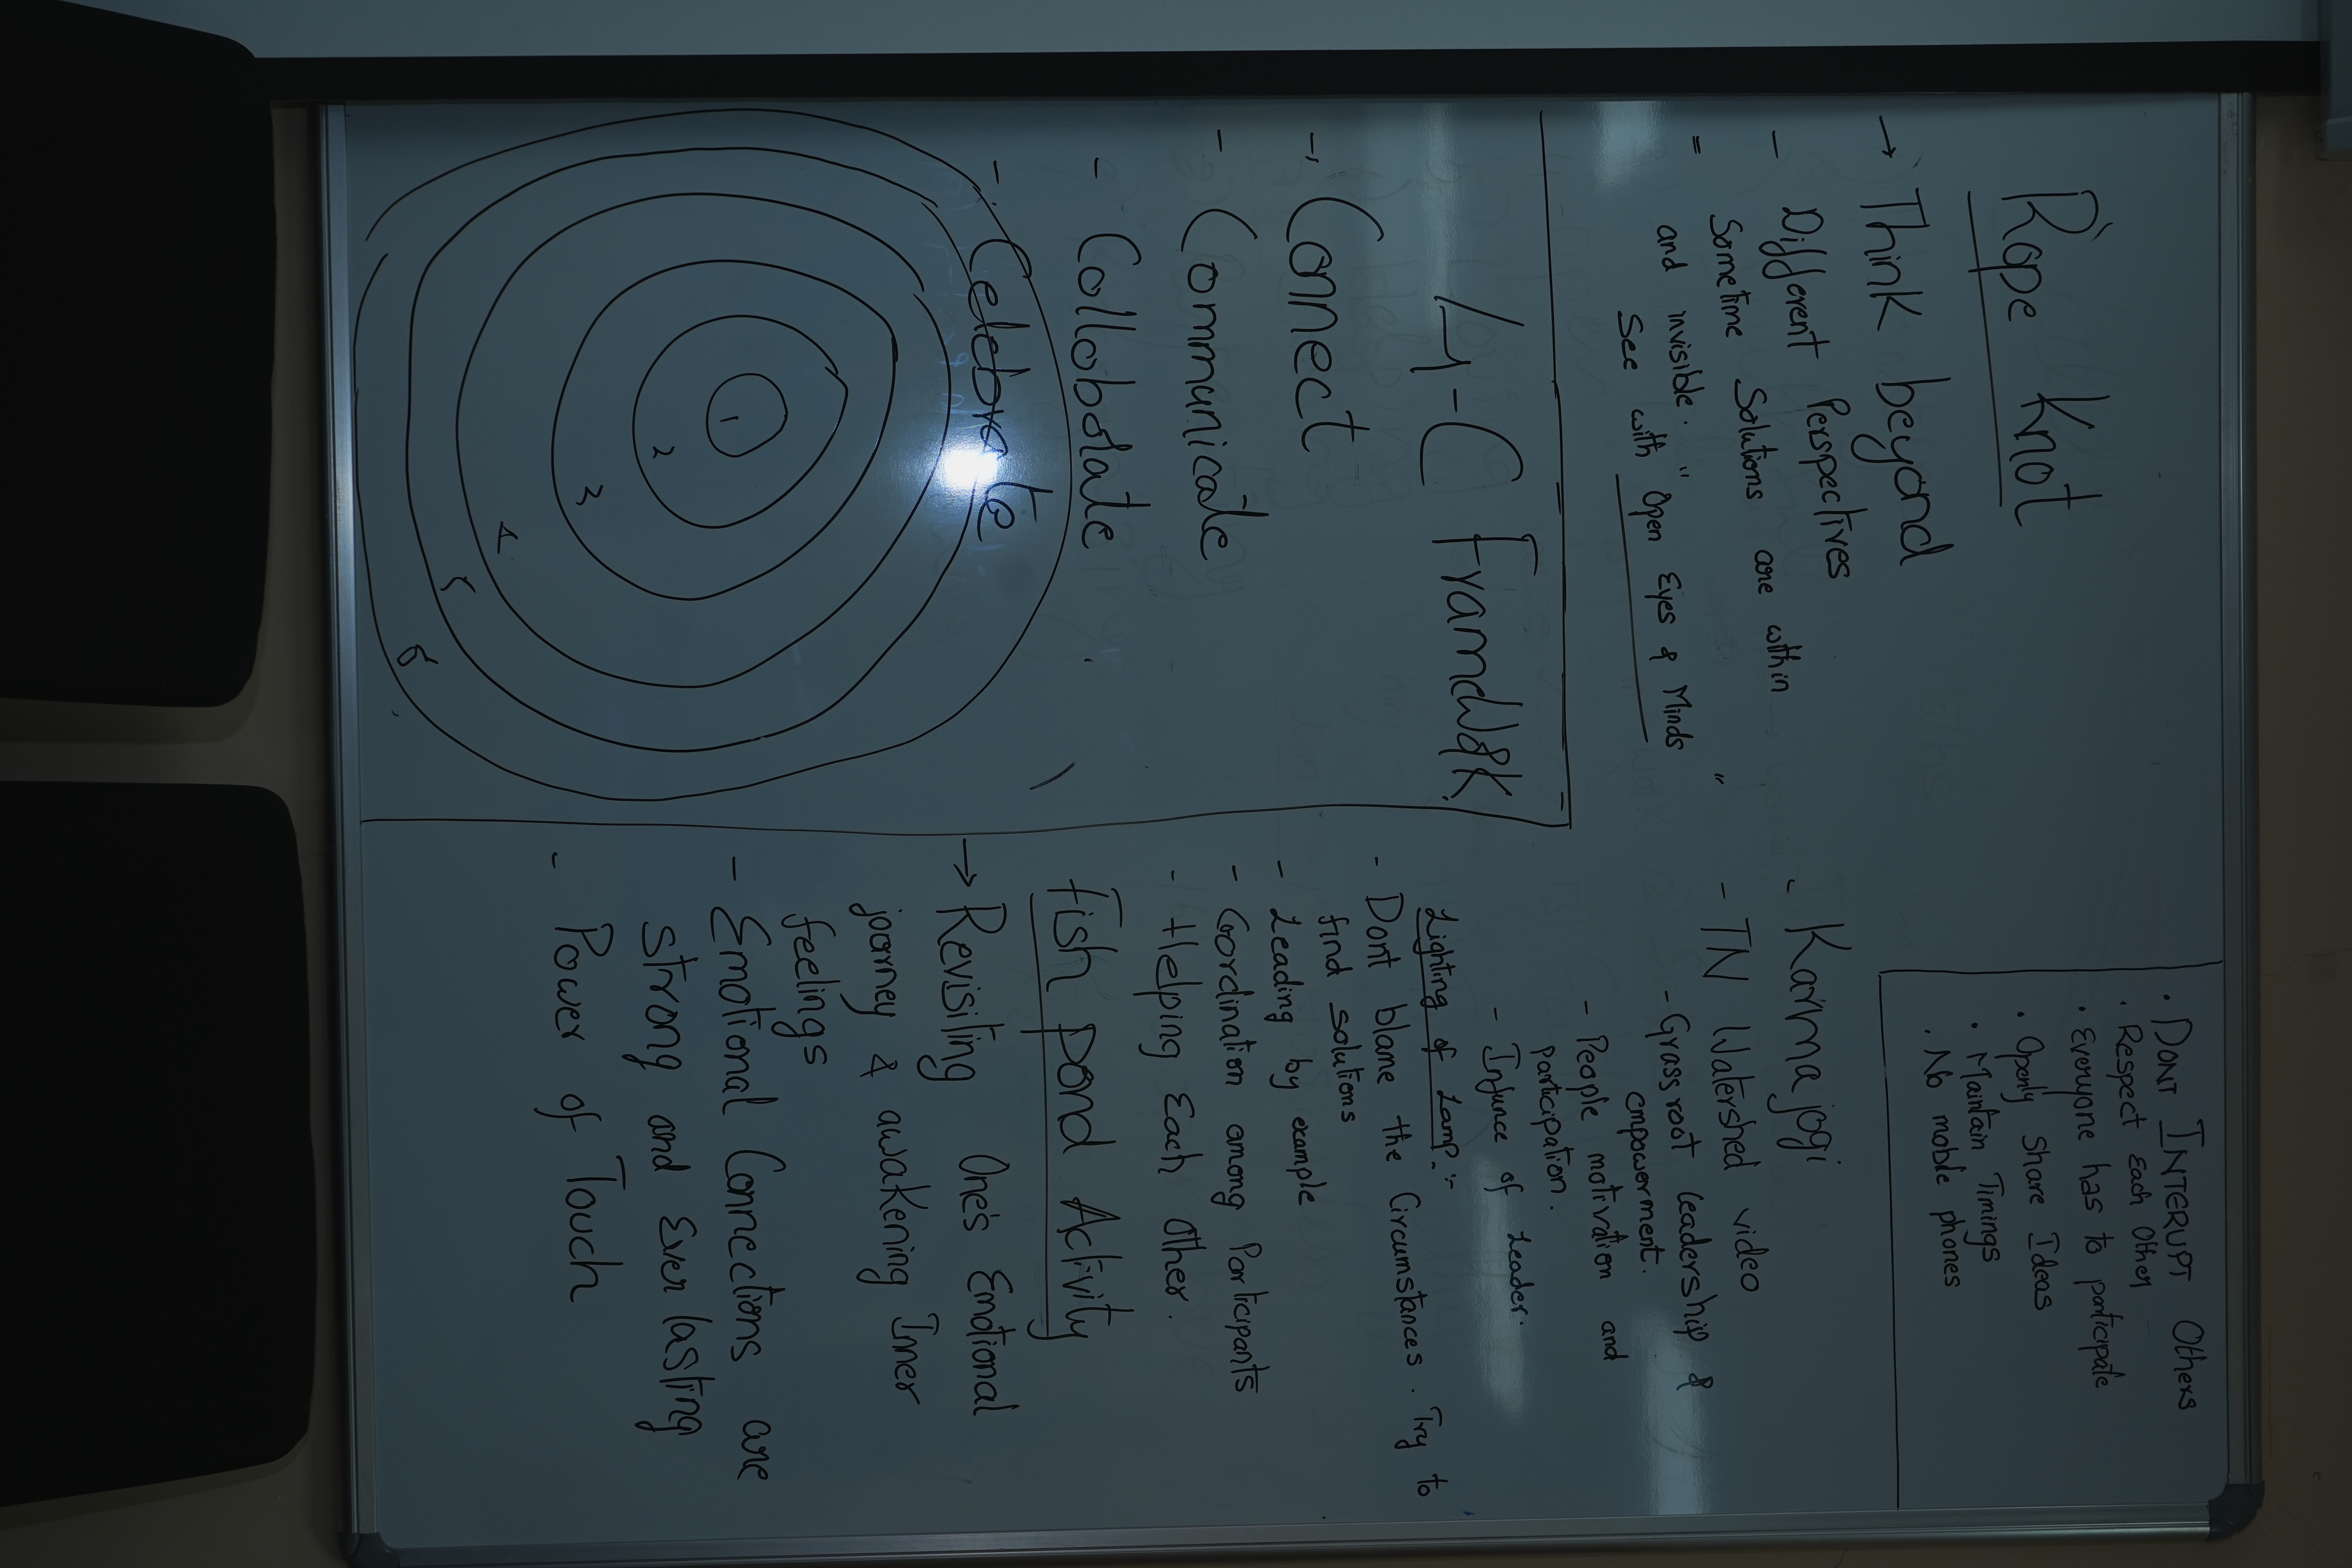 Rope Knot
→ Think beyond
- Different Perspectives
= Sometime Solutions are within
and invisible. " Open Eyes & Minds "
See with
4-C Framdwork
- Connect
- Communicate
- Collobolate
- Celebrate
1
2
3
4
5
6
· DONT INTERUPT Others
· Respect Each Other
· Everyone has to participate
· Openly Share Ideas
· Maintain Timings
· No mobile phones
- Karmajogi
- TN Watershed video
- Grassroot leadership &
empowerment.
- People motivation and
participation.
- Infunce of Leader.
Lighting of Lamp:-
- Dont blame the Circumstances. Try to
find solutions
- Leading by example
- Cordination among Participants
- Helping Each Other.
Fish pond Activity
→ Revisiling One's Emotional
jorney & awakening Inner
feelings
- Emotional Connections are
strong and Ever lasting
- Power of Touch